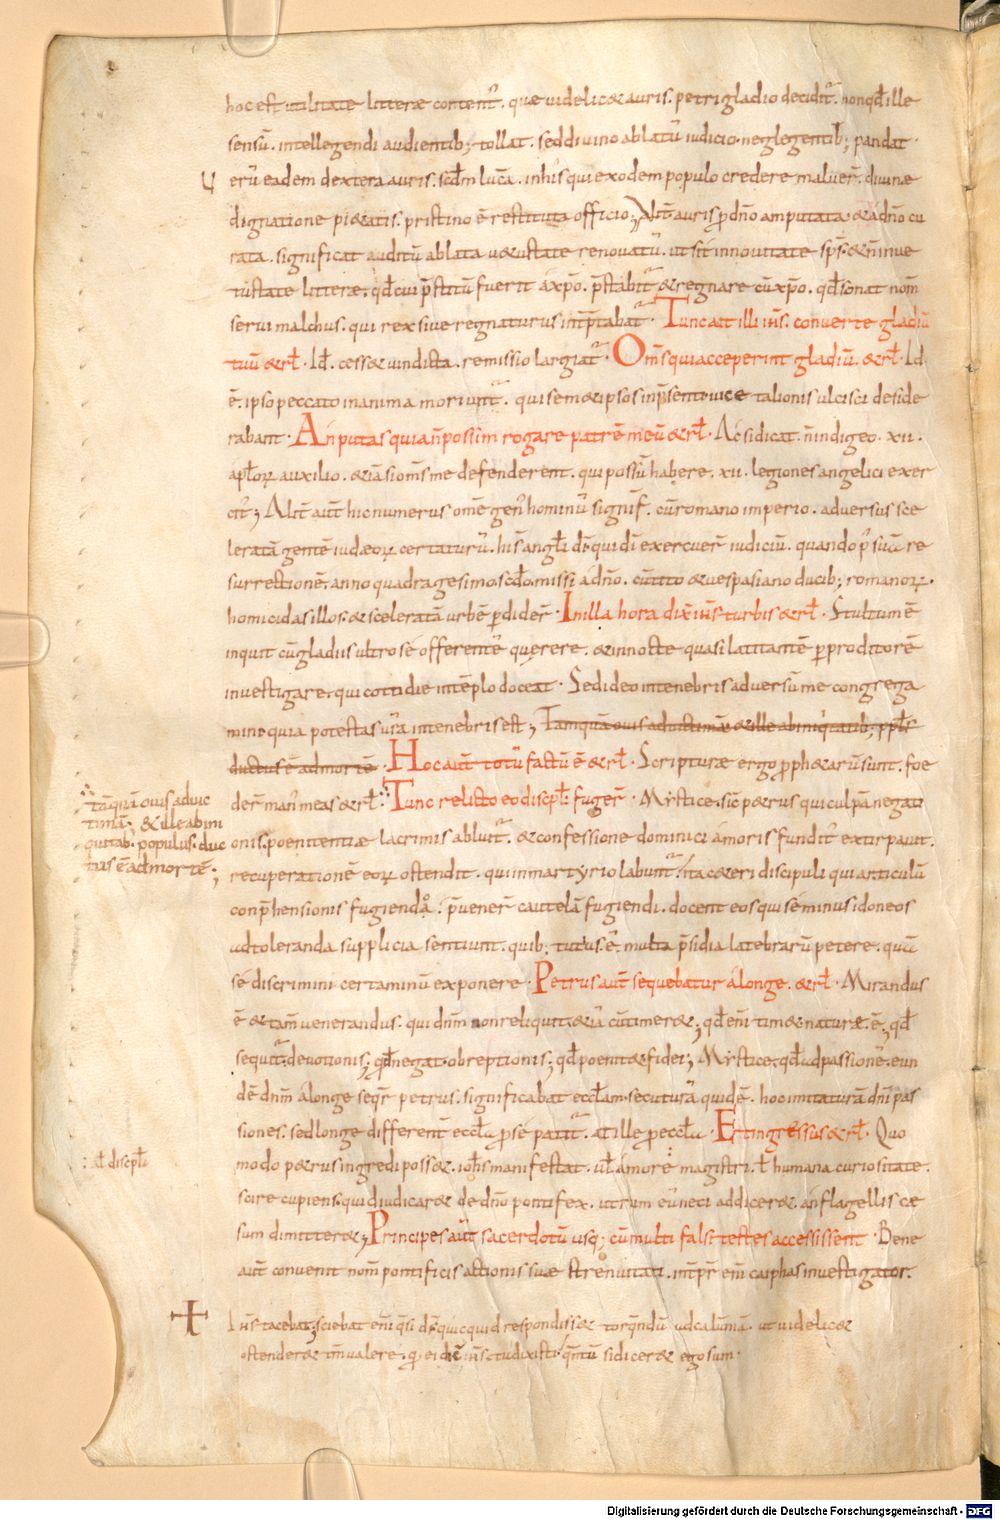 hoc est utilitate litteræ contenti. que uidelic& auris. petri gladio decidit. non qd ille
sensū. intellegendi audientib; tollat. sed diuino ablatū iudicio neglegentib; pandat.
erū eadem dextera auris. scdm lucā. in his qui ex odem populo credere maluer. diuinæ
dignatione pi&atis. pristino ē restituta officio; Alit auris p dno amputata. & a dno cu
rata. significat auditū ablata u&ustate renouatū. ut sit in nouitate sps. & n in ue
tustate litteræ. qd cui pstitū fuerit a xpo. pstabit & regnare cū xpo. qd sonat nom
serui malchus. qui rex siue regnaturus intptabat. Tunc ait illi ihs. conuerte gladiū
tuū & rl. Id. cess& uindicta. remissio largiat. Oms qui acceperint gladiū. & rl. Id
ē. ipso peccato in anima moriunt. qui sem& ipsos in psenti uice talionis ulcisci deside
rabant. An putas quia n possim rogare patrē meū & rl. Ac si dicat. n indigeo. xii.
aplorum auxilio. & iā si oms me defenderent. qui possū habere. xii. legiones angelici exer
citus; Alit aut hic numerus omē gen hominū signif. cū romano imperio. aduersus sce
leratā gentē iudæorum certaturū. his angli di qui di exercuer iudiciū. quando p suā re
surrectionē. anno quadragesimo scdo missi a dno. cū tito & uespasiano ducib; romanorum.
homicidas illos. & sceleratā urbē pdider. In illa hora dix ihs turbis & rl. Stultum ē
inquit cū gladiis ultro se offerentē querere. & in nocte quasi latitantē p proditorē
inuestigare. qui cottidie in tēplo doceat. Sed ideo in tenebris aduersū me congrega
mini quia potestas ura in tenebris est; Tamquā ouis ad uictimā & ille ab iniquitatib; ppls
ductus ē ad mortē. Hoc aut totū factū ē & rl. Scripturæ ergo proph&arū sunt. foe
der man meas & rl. Tunc relicto eo discpli fuger. Mystice. sic p&rus qui culpā negati
tāquā ouis ad uic
timā. & ille ab ini
quitab. populus. duc
tus ē ad mortē;
onis. poenitentiæ lacrimis abluit. & confessione dominici amoris fundit extirpauit.
recuperationē eorum ostendit. qui in martyrio labunt. ita & ceteri discipuli qui articulū
conphensionis fugiendo. puener cautelā fugiendi. docent eos qui se minus idoneos
ad toleranda supplicia sentiunt. quib; tutius ē. multa psidia latebrarū petere. quā
se discrimini certaminū exponere. Petrus aut sequebatur a longe. & rl. Mirandus
ē & tam uenerandus. qui dnm non reliquit. & iā cū timer&; qd eni tim& naturæ. ē; qd
sequit. deuotionis; qd negat. obreptionis; qd poenit& fidei; Mystice. qd ad passionē. eun
dē dnm a longe seqr petrus. significabat ecclam. secuturā quidē. hoc imitaturā dni pas
siones. sed longe differenti eccla p se patit. at ille p eccla. Et ingressus & rl. Quo
al discpli
modo p&rus ingredi poss&. iohs manifestat. ul amore magistri. l humana curiositate.
scire cupiens. qui diudicar& de dno pontifex. utrum eū neci addicer&. an flagellis cæ
sum dimitter&; Principes aut sacerdotū usq; cū multi falsi testes accessissent. Bene
aut conuenit nom pontificis actionis suæ strenuitati. intpr eni caiphas inuestigator.
Ihs tacebat; sciebat eni qsi ds quicquid respondiss& torqndū ad calūmniā. ut uidelic&
ostender& tm ualere. q ei dix ihs. tu dixisti. qntū si dicer& ego sum.
Digitalisierung gefördert durch die Deutsche Forschungsgemeinschaft - DFG